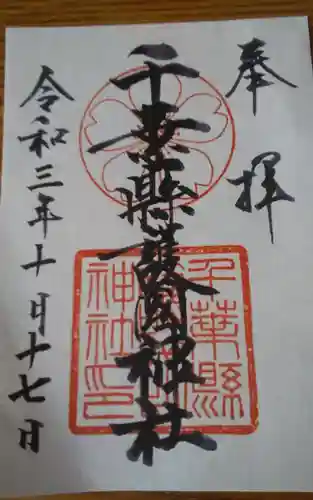 奉拝
千葉縣護國神社
千葉縣護國神社印
令和三年十月十七日